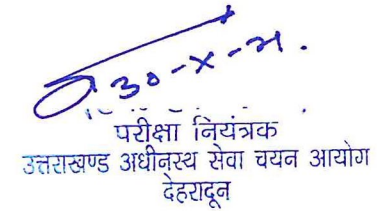 30-X-21.
परीक्षा नियंत्रक
उत्तराखण्ड अधीनस्थ सेवा चयन आयोग
देहरादून